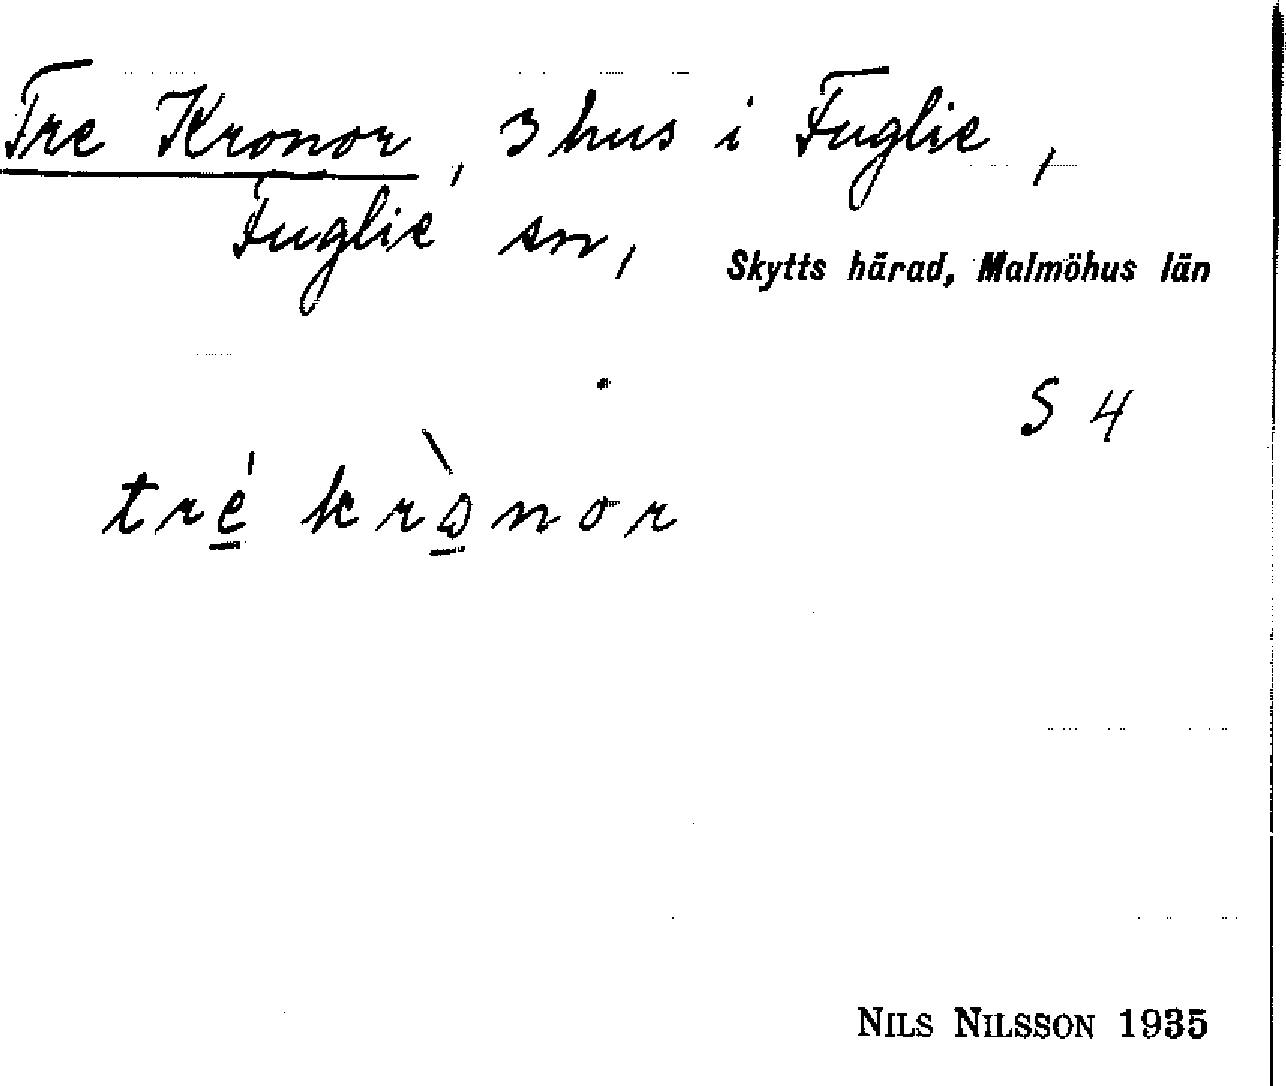 Tre Kronor, 3 hus i Fuglie,
Fuglie sn, Skytts härad, Malmöhus län
S 4
tré̲ krò̲nor
NILS NILSSON 1935